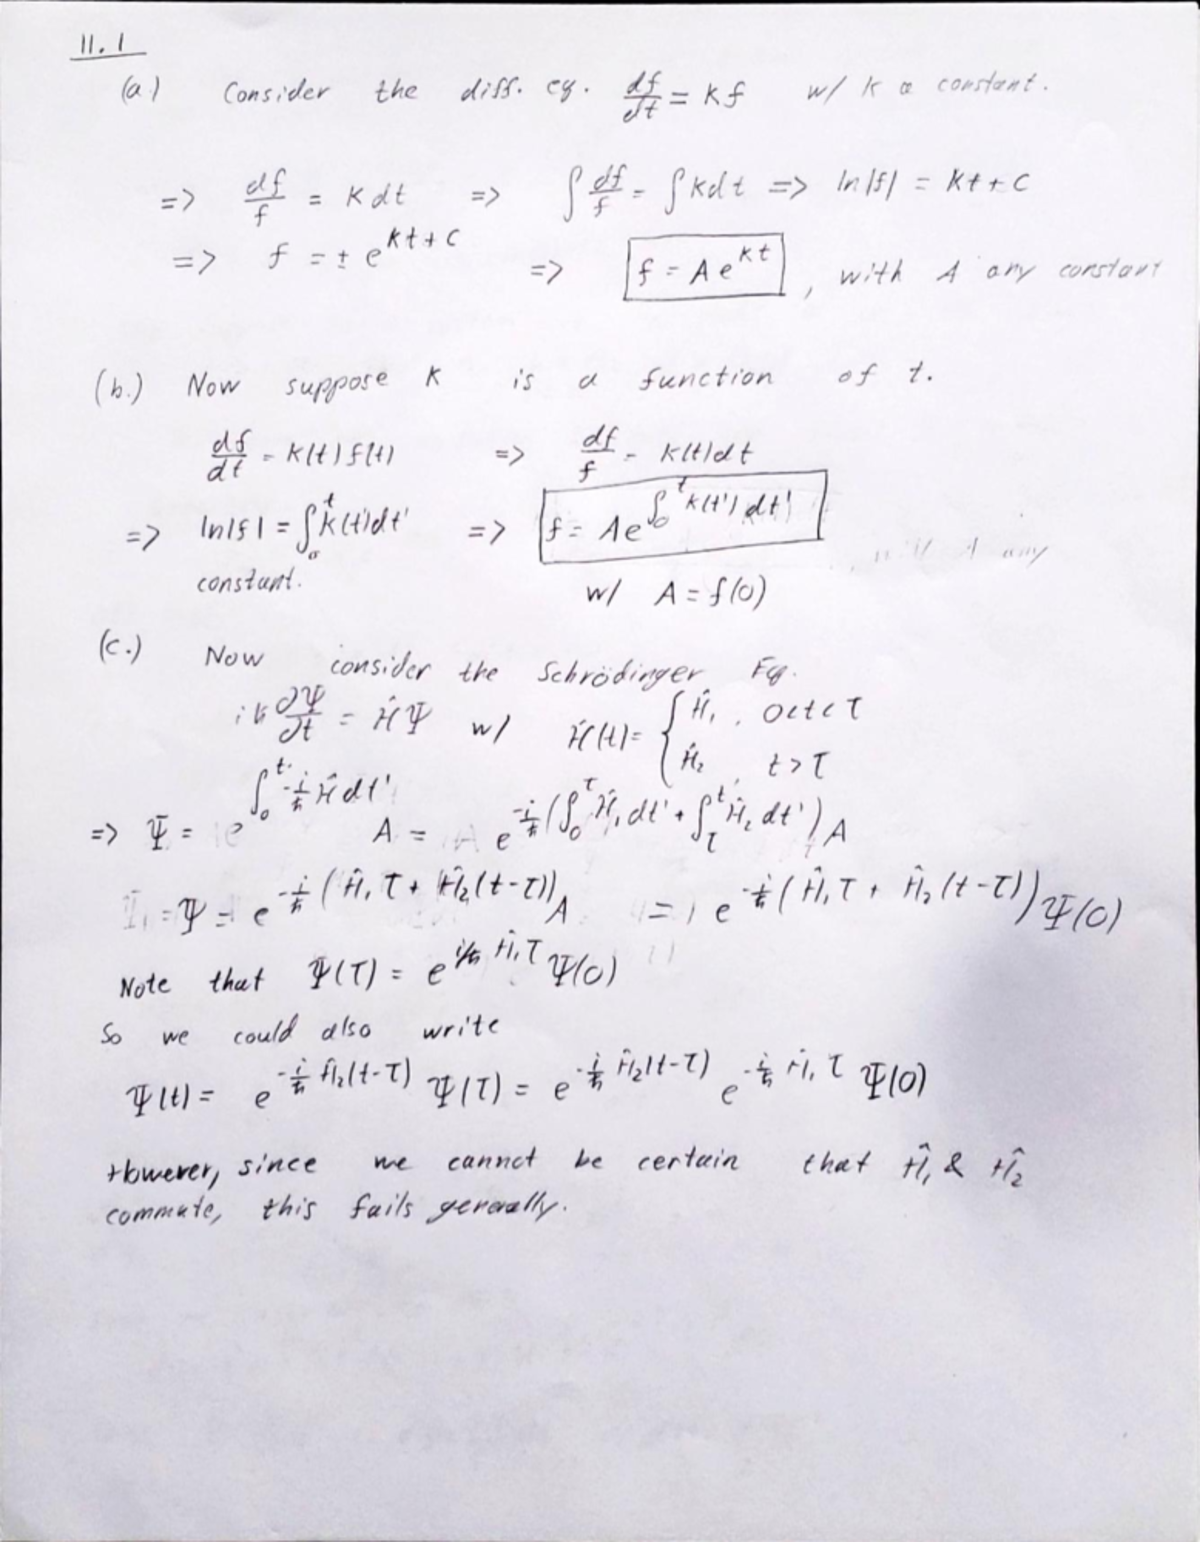 11.1
(a.) Consider the diff. eq. df/dt = kf w/ k a constant.
=> df/f = k dt => ∫ df/f = ∫ k dt => ln|f| = kt + c
=> f = ± e^{kt+c} => f = A e^{kt}, with A any constant
(b.) Now suppose k is a function of t.
df/dt = k(t) f(t) => df/f = k(t)dt
=> ln|f| = ∫_0^t k(t')dt' => f = A e^{∫_0^t k(t') dt'}
constant. w/ A = f(0)
(c.) Now consider the Schrödinger Eq.
iħ ∂Ψ/∂t = ĤΨ w/ Ĥ(t) = { Ĥ₁, 0<t<τ
Ĥ₂, t>τ
=> Ψ = e^{∫_0^t -i/ħ Ĥ dt'} A = e^{-i/ħ (∫_0^τ Ĥ₁ dt' + ∫_τ^t Ĥ₂ dt')} A
=Ψ = e^{-i/ħ (Ĥ₁τ + Ĥ₂(t-τ))} A = e^{-i/ħ (Ĥ₁τ + Ĥ₂(t-τ))} Ψ(0)
Note that Ψ(τ) = e^{i/ħ Ĥ₁τ} Ψ(0)
So we could also write
Ψ(t) = e^{-i/ħ Ĥ₂(t-τ)} Ψ(τ) = e^{-i/ħ Ĥ₂(t-τ)} e^{-i/ħ Ĥ₁τ} Ψ(0)
However, since we cannot be certain that Ĥ₁ & Ĥ₂
commute, this fails generally.